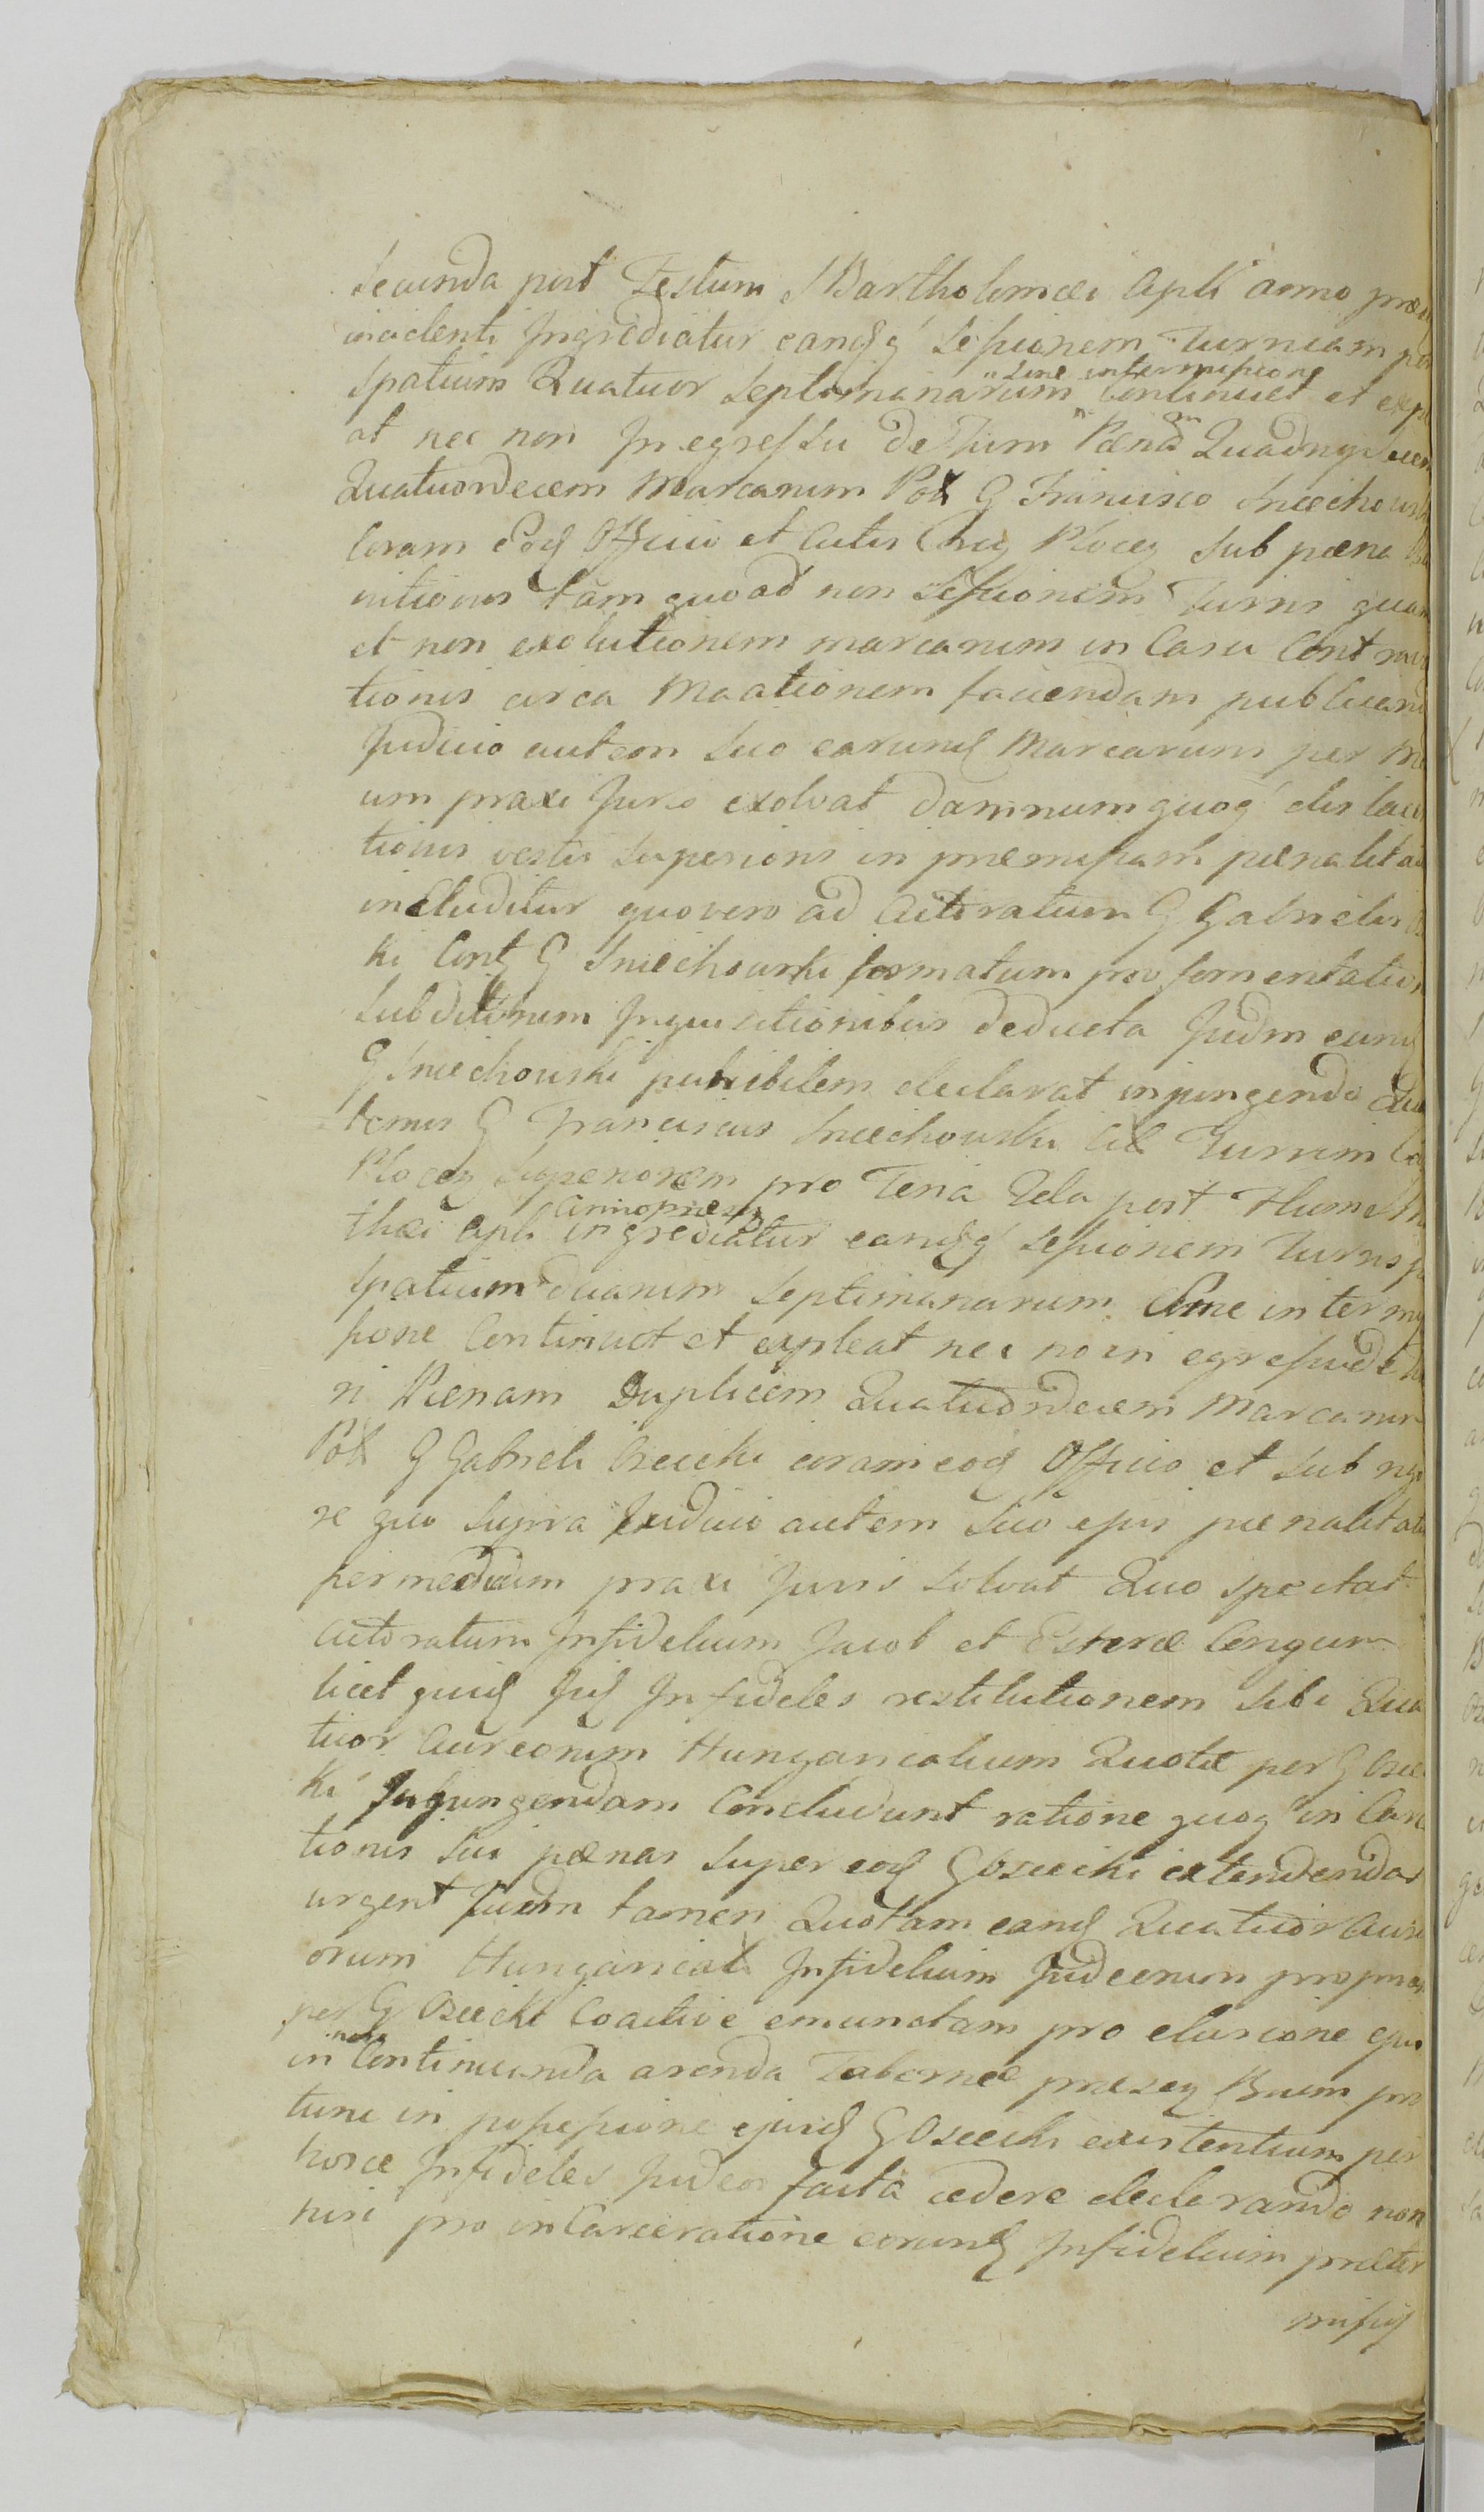 Secunda post Festum S Bartholomæi Apli anno præ
incidenti Ingrediatur eandq sessionem Turriam per
spatium Quatuor Septimanarum sine intermissione Continuet et expl
at nec non In egressu de Turri Pænam Quadruplicem
Quatuordecem Marcarum Pol G Francisco Sniechowsk
Coram eodq Officio et Actis Plocq sub pæna
nitionis tam quoad non sessionem Turris quam
et non exolutionem marcarum in Casu Contraven
tionis circa faciendam publicand
Judicio autem suo earundq Marcarum per me
um praxi Juris exolvat damnum quoq dislace
tionis vestis superioris in præmissam pænalitat
includitur quovero ad Actoratum G Gabrielis
ki Contq G Sniechowski formatum pro fomentation
Subditorum Inquisitionibus deducta Judm eundq
G Sniechowski punibilem declarat injungendo Qua
tenus G Franciscus Sniechowski Turrim
Plocq superiorem pro Feria 2da post Mat
thæi Apli anno præsq ingrediatur eandqq sessionem Turris p
spatium duarum Septimanarum sine intermis
sione Continuet et expleat nec non in egressu de tur
ri Pænam Duplicem Quatuordecem Marcarum
Pol G Gabrieli Osiecki coram eodq Officio et sub rigo
re quo supra Judicio autem suo ejus pænalitatis
per medium praxi Juris solvat Quo spectat
Actoratum Infidelium Jacob et Esteræ Conjugum
licet quidq Infideles restitutionem sibi Qua
tuor Aureorum Hungaricalium Quotæ per G Osiec
ki Injungendam Concludunt ratione quoq in Carce
tionis sui pænas super eodq G Osiecki extendendas
urgent Judm tamen Quotam eandq Quatuor Aure
orum Hungarical Infidelium Judæorum propriam
per G Osiecki Coactive emunctam pro elusione ejus
in non Continuenda arenda Tabernæ præsq Bnorum pro
tunc in possessione ejusdq G Osiecki existentium per
hosce Infideles Judæos facta cedere declarando non
nisi pro in Carceratione eorundq Infidelium præter
missis